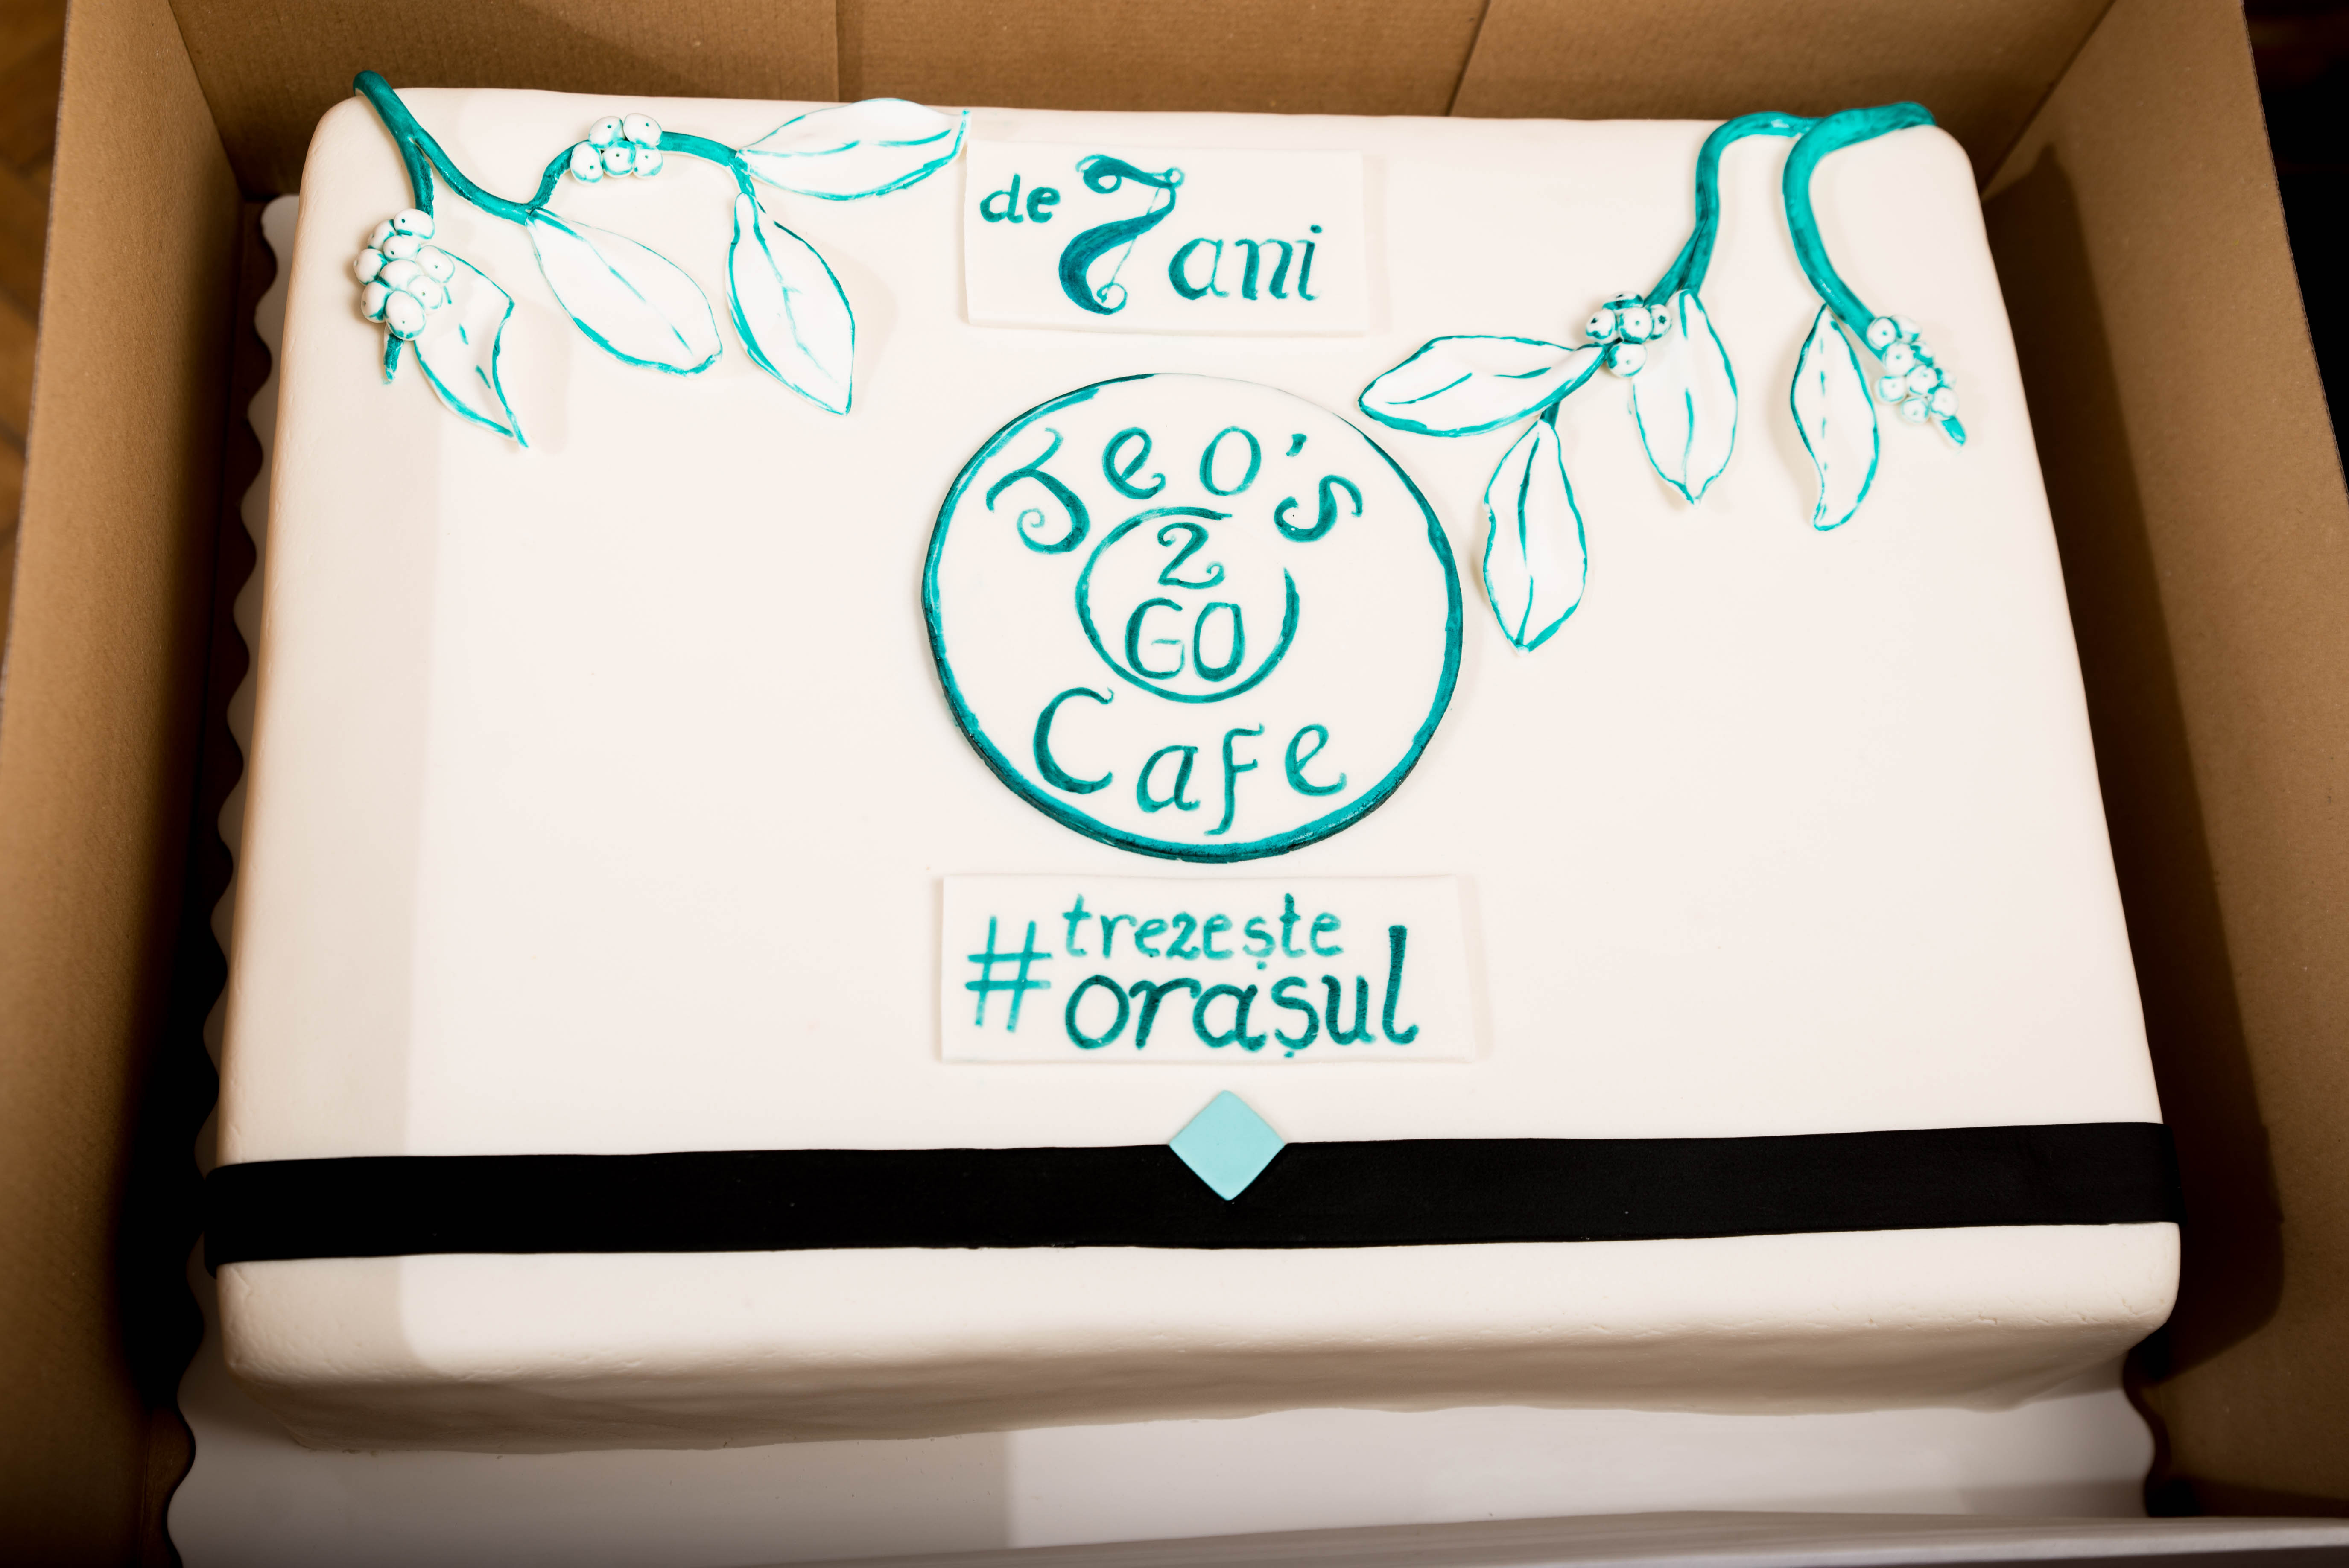 de 7 ani
Jeo's
2
GO
Cafe
#trezește
orașul